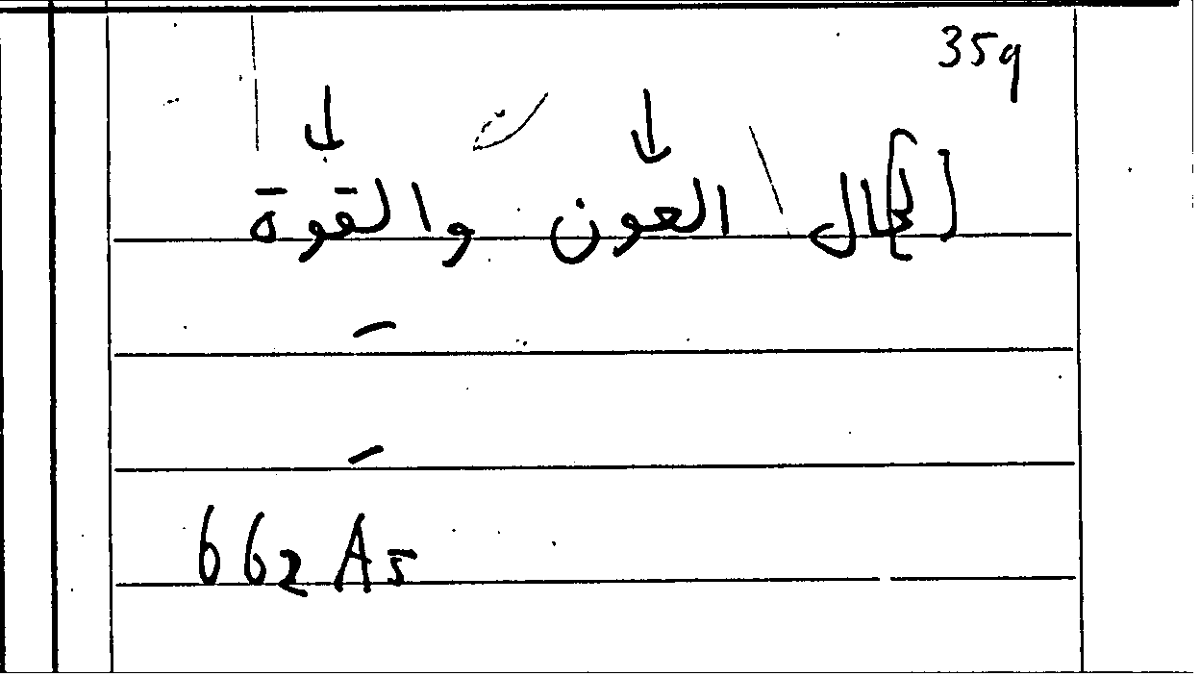 359
[المال] العون والقوة
—
—
662 A5